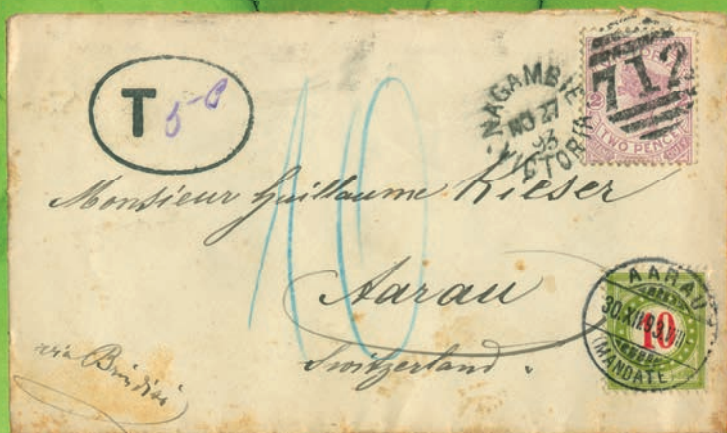 T 5
NAGAMBIE
NO 27
93
VICTORIA
712
2
TWO PENCE
10
Monsieur Guillaume Kieser
Aarau
Switzerland.
via Brindisi
AARAU
30.XII.93
(MANDATE)
10